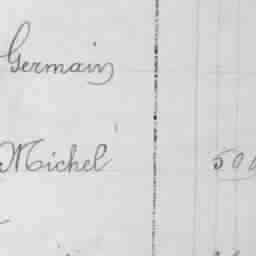 Germain
Michel 500